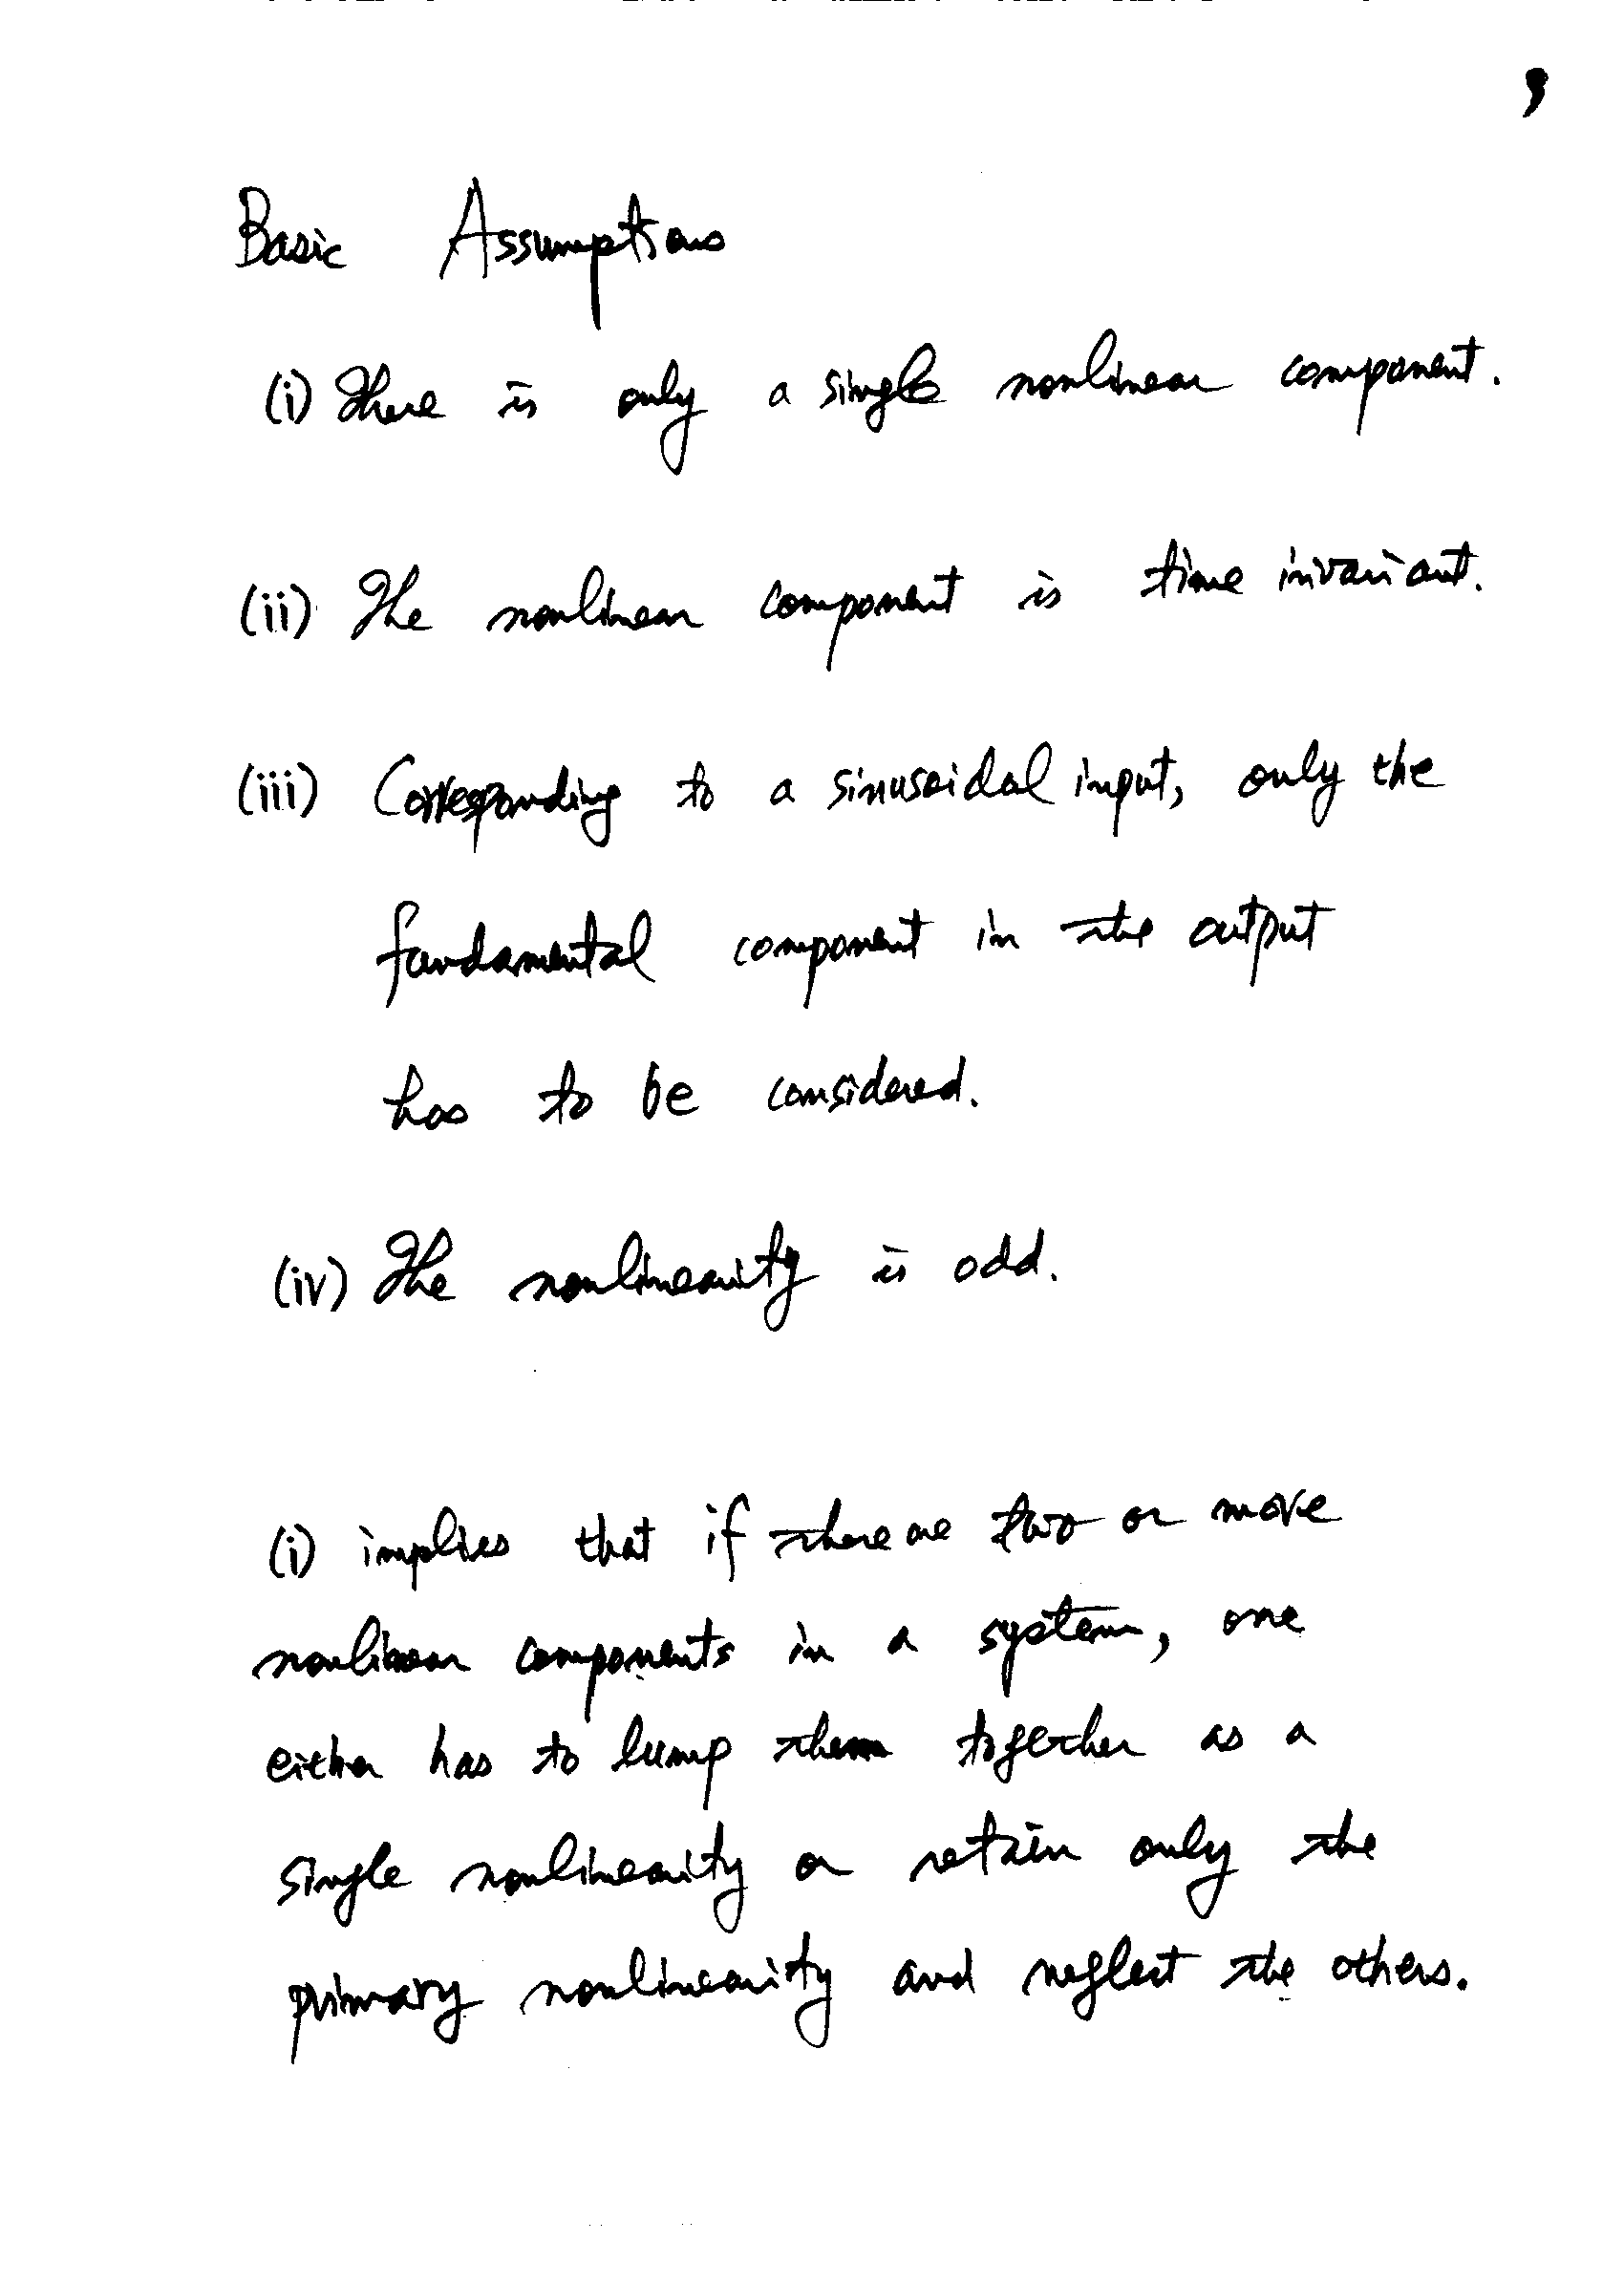 9
Basic Assumptions
(i) There is only a single nonlinear component.
(ii) The nonlinear component is time invariant.
(iii) Corresponding to a sinusoidal input, only the
fundamental component in the output
has to be considered.
(iv) The nonlinearity is odd.
(i) implies that if there are two or more
nonlinear components in a system, one
either has to lump them together as a
single nonlinearity or retain only the
primary nonlinearity and neglect the others.